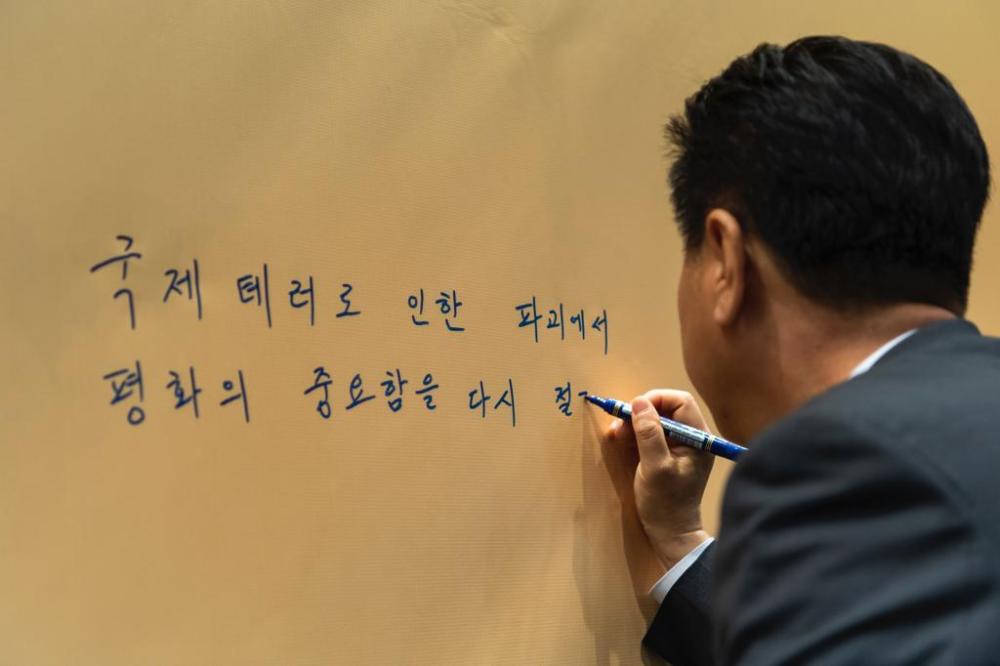 국제 테러로 인한 파괴에서
평화의 중요함을 다시 절